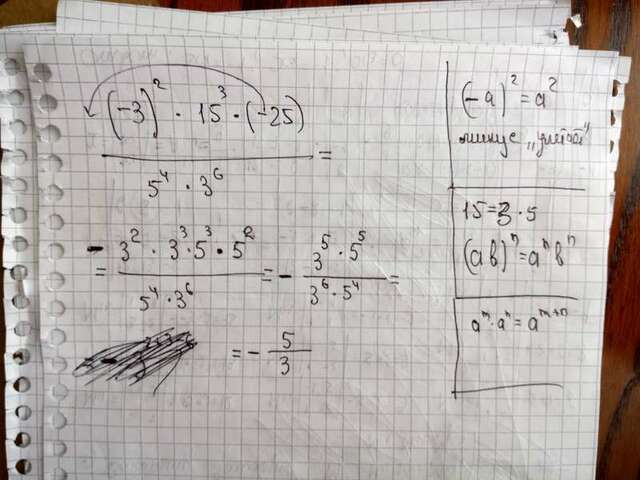 (-3)² · 15³ · (-25)
5⁴ · 3⁶
=
= - 3² · 3³ · 5³ · 5²
5⁴ · 3⁶
= - 3⁵ · 5⁵
3⁶ · 5⁴
=
= - 5
3
(-a)² = a²
минус
15 = 3 · 5
(ab)ⁿ = aⁿbⁿ
aᵐ · aⁿ = aᵐ⁺ⁿ